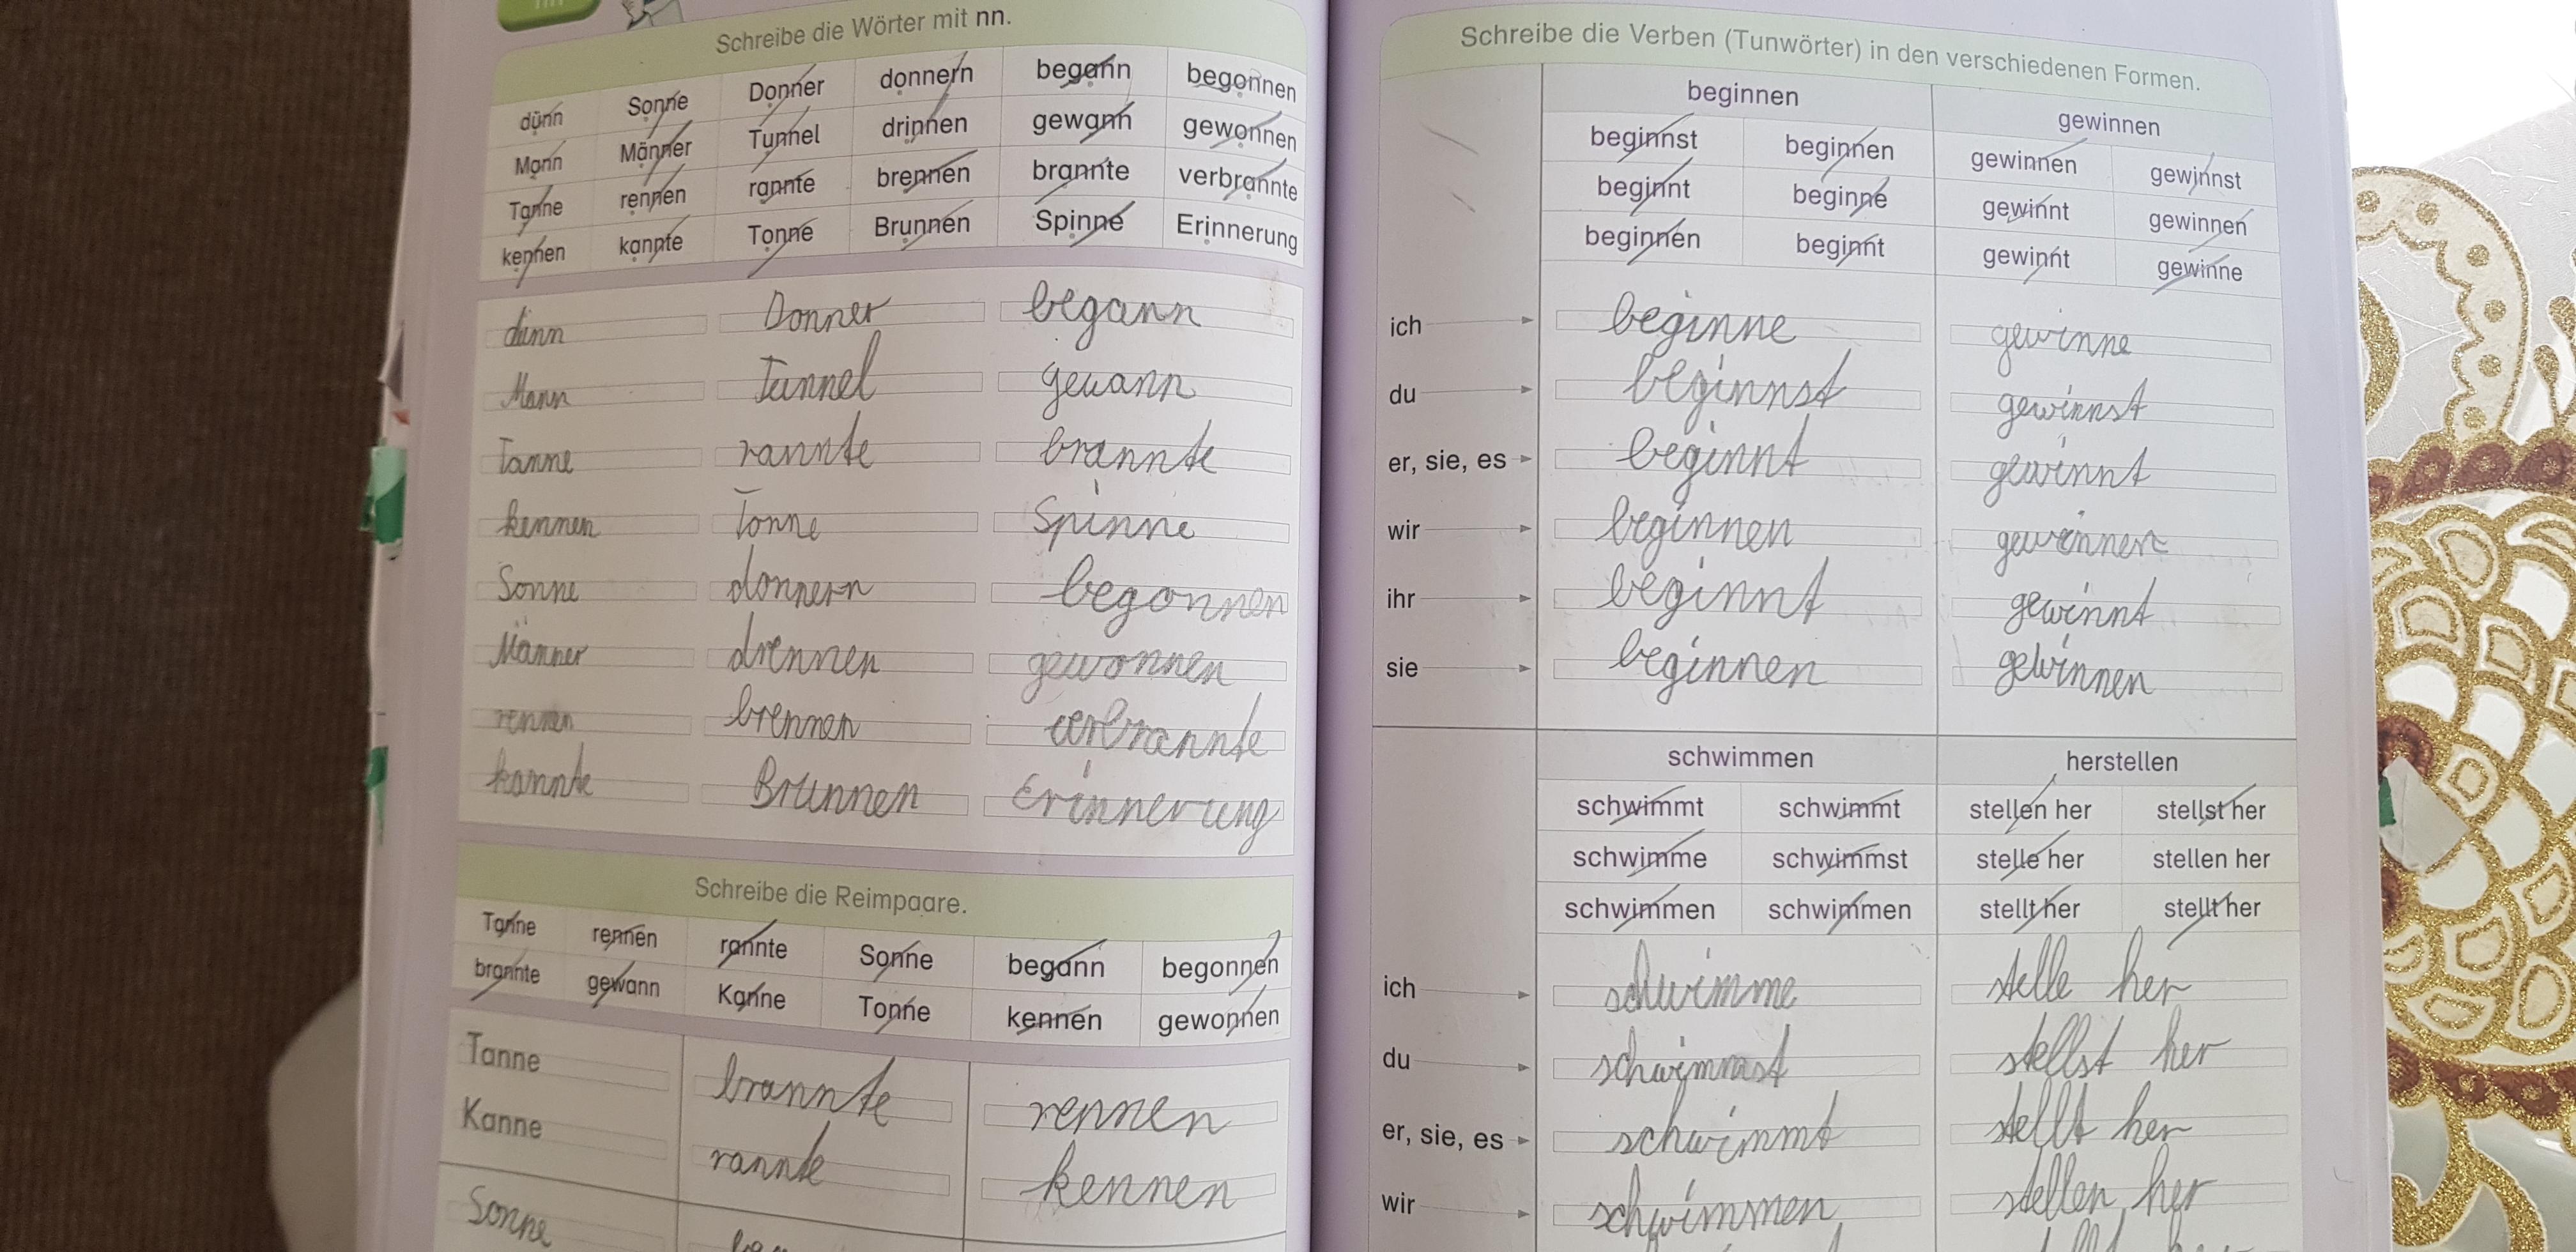 Schreibe die Wörter mit nn.
dünn Sonne Donner donnern begann begonnen
Mann Männer Tunnel drinnen gewann gewonnen
Tanne rennen rannte brennen brannte verbrannte
kennen kannte Tonne Brunnen Spinne Erinnerung
dünn Donner begann
Mann Tunnel gewann
Tanne rannte brannte
kennen Tonne Spinne
Sonne donnern begonnen
Männer drennen gewonnen
rennen brennen verbrannte
kannte Brunnen Erinnerung
Schreibe die Reimpaare.
Tanne rennen rannte Sonne begann begonnen
brannte gewann Kanne Tonne kennen gewonnen
Tanne brannte rennen
Kanne rannte kennen
Sonne
Schreibe die Verben (Tunwörter) in den verschiedenen Formen.
beginnen gewinnen
beginnst beginnen gewinnen gewinnst
beginnt beginne gewinnt gewinnen
beginnen beginnt gewinnt gewinne
ich beginne gewinne
du beginnst gewinnst
er, sie, es beginnt gewinnt
wir beginnen gewinnen
ihr beginnt gewinnt
sie beginnen gewinnen
schwimmen herstellen
schwimmt schwimmt stellen her stellst her
schwimme schwimmst stelle her stellen her
schwimmen schwimmen stellt her stellt her
ich schwimme stelle her
du schwimmst stellst her
er, sie, es schwimmt stellt her
wir schwimmen stellen her